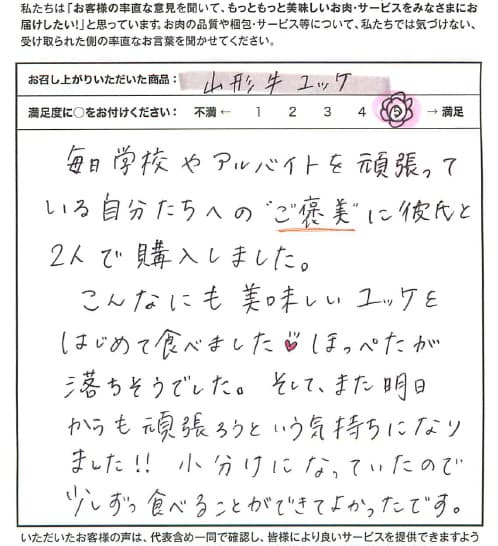 私たちは「お客様の率直な意見を聞いて、もっともっと美味しいお肉・サービスをみなさまにお
届けしたい!」と思っています。お肉の品質や梱包・サービス等について、私たちでは気づけない、
受け取られた側の率直なお言葉を聞かせてください。
お召し上がりいただいた商品: 山形牛 ユッケ
満足度に○をお付けください: 不満 ← 1 2 3 4 5 → 満足
毎日学校やアルバイトを頑張って
いる自分たちへの"ご褒美"に彼氏と
2人で購入しました。
こんなにも美味しいユッケを
はじめて食べました♥ ほっぺたが
落ちそうでした。そして、また明日
からも頑張ろうという気持ちになり
ました!! 小分けになっていたので
少しずつ食べることができてよかったです。
いただいたお客様の声は、代表含め一同で確認し、皆様により良いサービスを提供できますよう